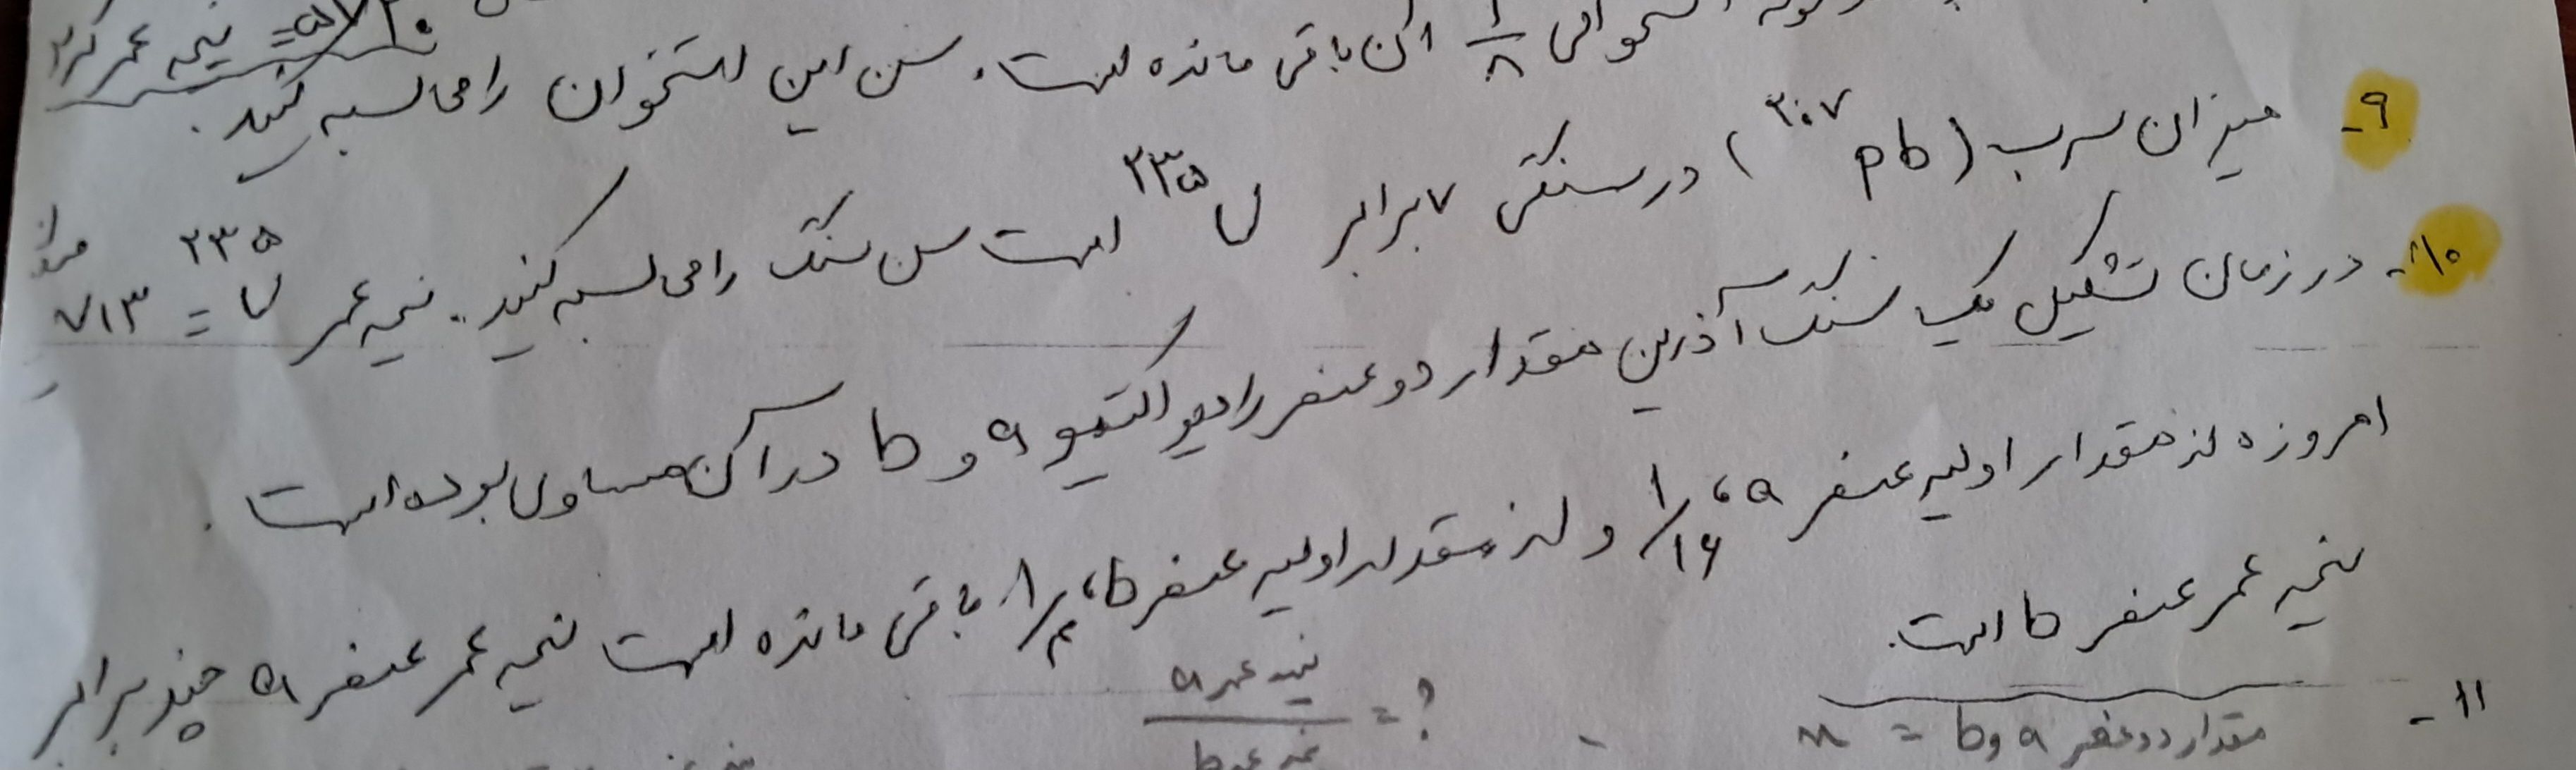 نیمه عمر کربن = ۵۷۳۰
۱/۸ آن باقی مانده است. سن این استخوان را محاسبه کنید.
۹- میزان سرب (Pb ۲۰۷) در سنگی ۷ برابر U ۲۳۵ است سن سنگ را محاسبه کنید. نیمه عمر U ۲۳۵ = ۷۱۳
۱۰- در زمان تشکیل یک سنگ آذرین مقدار دو عنصر رادیو اکتیو a و b در آن مساوی بوده است.
امروزه از مقدار اولیه عنصر a، ۱/۱۶ و از مقدار اولیه عنصر b، ۱/۴ باقی مانده است نیمه عمر عنصر a چند برابر
نیمه عمر عنصر b است.
۱۱-
مقدار دو عنصر a و b =
نیمه عمر a / نیمه عمر b = ?